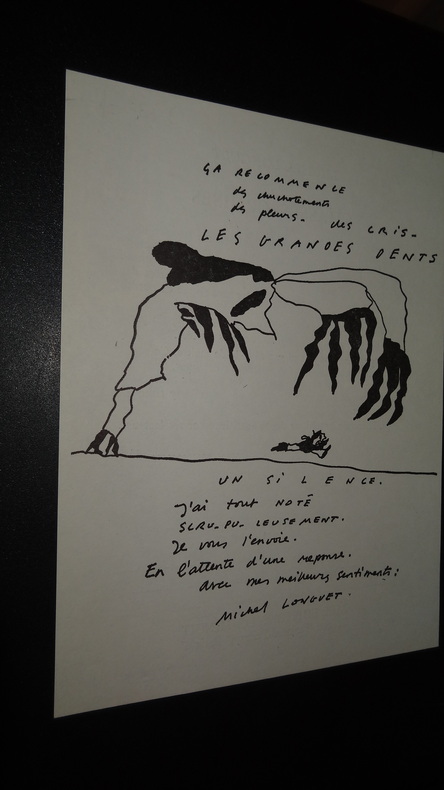 ÇA RECOMMENCE
des chuchotements
des pleurs. des CRIS.
LES GRANDES DENTS
UN SiLENCE.
J'ai tout NOTÉ
SCRU-PU-LEUSEMENT.
Je vous l'envoie.
En l'attente d'une reponse.
avec mes meilleurs sentiments:
Michel LONGUET.